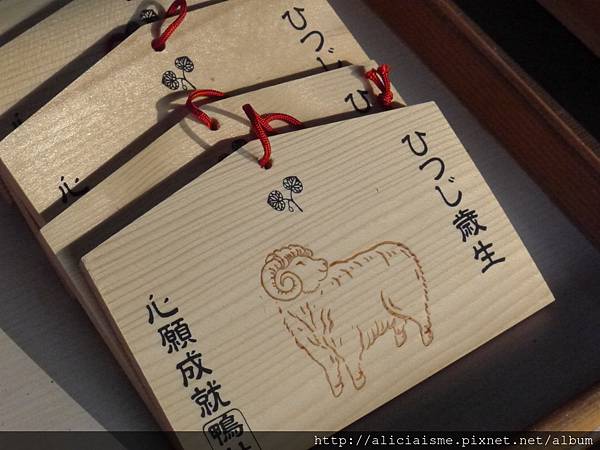 ひつじ歳生
心願成就
鴨社
ひつじ
ひ
心
http://aliciaisme.pixnet.net/album